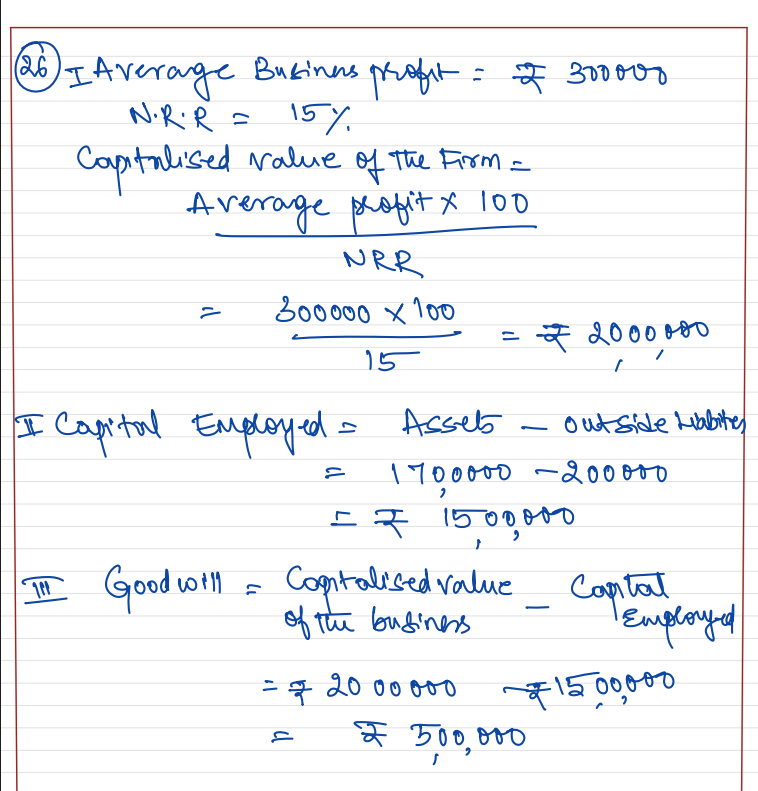 26 I Average Business profit = ₹ 300000
N.R.R = 15%.
Capitalised Value of The Firm =
Average profit x 100
NRR
= 300000 x 100
15
= ₹ 20,00,000
II Capital Employed = Assets - outside Liabilities
= 170,0000 - 200000
= ₹ 15,00,000
III Goodwill = Capitalised value of the business - Capital Employed
= ₹ 20 00 000 - ₹ 15,00,000
= ₹ 5,00,000